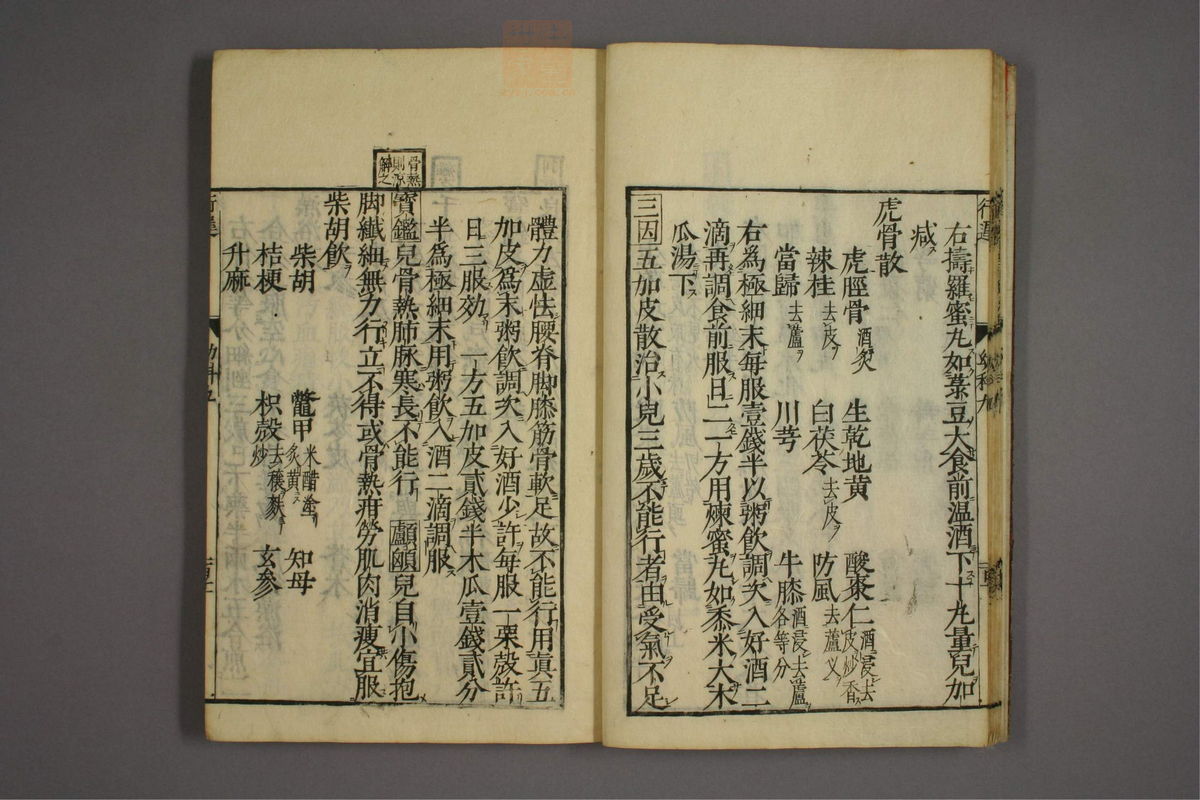 右擣羅蜜丸如菉豆大食前温酒下十丸量兒加
減
虎骨散
虎脛骨酒炙 生乾地黄 酸棗仁酒浸去皮炒香
辣桂去皮 白茯苓去皮 防風去蘆叉
當歸去蘆 川芎 牛膝酒浸去蘆各等分
右爲極細末每服壹錢半以粥飲調次入好酒二
滴再調食前服日二一方用煉蜜丸如黍米大木
瓜湯下
三因五加皮散治小兒三歲不能行者由受氣不足
體力虛怯腰脊脚膝筋骨軟足故不能行用眞五
加皮爲末粥飲調次入好酒少許每服一栗殼許
日三服効 一方五加皮貳錢半木瓜壹錢貳分
半爲極細末用粥飲入酒二滴調服
骨熱
則
解之
寳鑑兒骨熱肺脉寒長不能行 顱顖兒自小傷抱
脚纖細無力行立不得或骨熱疳勞肌肉消瘦宜服
柴胡飲
柴胡 鼈甲米醋塗炙黄 知母
桔梗 枳殻去穰麩炒 玄參
升麻